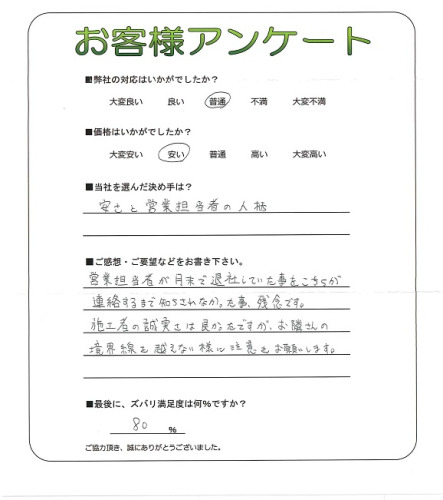 お客様アンケート
■弊社の対応はいかがでしたか?
大変良い 良い 普通 不満 大変不満
■価格はいかがでしたか?
大変安い 安い 普通 高い 大変高い
■当社を選んだ決め手は?
安さと営業担当者の人柄
■ご感想・ご要望などをお書き下さい。
営業担当者が月末で退社していた事をこちらが
連絡するまで知らされなかった事、残念です。
施工者の誠実さは良かったですが、お隣さんの
境界線を越えない様に注意をお願いします。
■最後に、ズバリ満足度は何%ですか?
80 %
ご協力頂き、誠にありがとうございました。